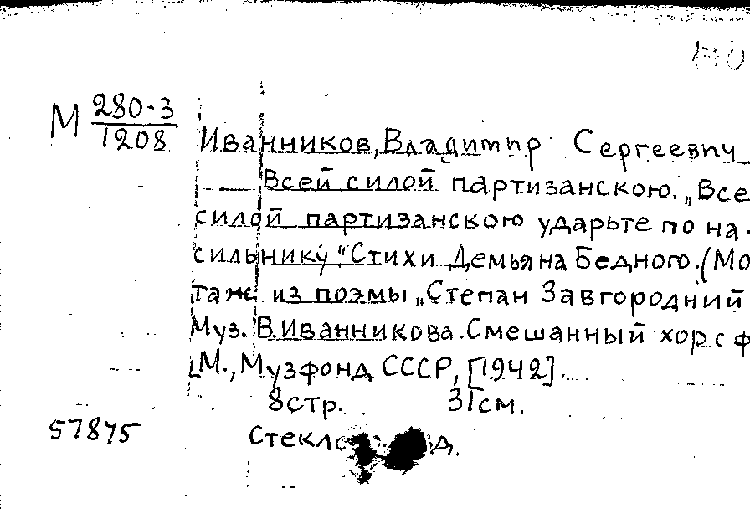 М 280-3
1208
Иванников, Владимир Сергеевич
Всей силой партизанскою. „Все
силой партизанскою ударьте по на-
сильнику" Стихи Демьяна Бедного. (Мо
таж из поэмы „Степан Завгородний
Муз. В. Иванникова. Смешанный хор с ф
М., Музфонд СССР, [1942].
8 стр. 31 см.
57875